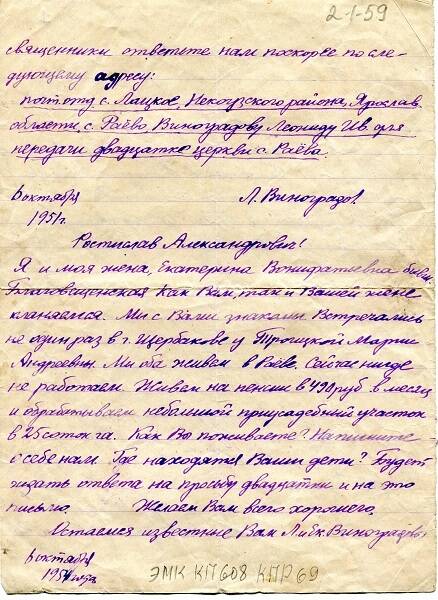 2-1-59
священники ответьте нам поскорее по сле-
дующему адресу:
почт. отд. с. Лацкое, Некоузского района, Ярослав.
области, с. Раёво Виноградову Леониду Ив. для
передачи двадцатке церкви с. Раёва.
6 октября Л. Виноградов.
1951г.
Ростислав Александрович!
Я и моя жена, Екатерина Вонифатьевна бывш.
Благовещенская как Вам, так и Вашей жене
кланяемся. Мы с Вами знакомы. Встречались
не один раз в г. Щербакове у Троицкой Марии
Андреевны. Мы оба живем в Раёве. Сейчас нигде
не работаем. Живем на пенсии в 490 руб. в месяц
и обрабатываем небольшой приусадебный участок
в 25 соток га. Как Вы поживаете? Напишите
о себе нам. Где находятся Ваши дети? Будем
ждать ответа на просьбу двадцатки и на это
письмо. Желаем Вам всего хорошего.
Остаемся известные Вам Л. и Ек. Виноградовы
6 октября
1951 года
ЭМК КП 608 КПР 69